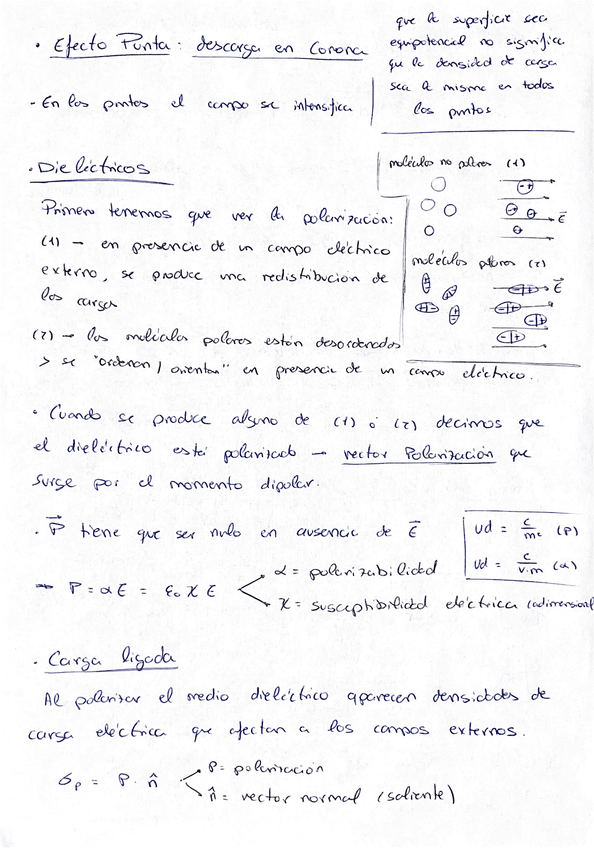 • Efecto Punta: descarga en Corona
que la superficie sea
equipotencial no significa
que la densidad de carga
sea la misma en todos
los puntos.
- En las puntas el campo se intensifica
• Dieléctricos
moléculas no polares (1)
E
moléculas polares (2)
E
Primero tenemos que ver la polarización:
(1) → en presencia de un campo eléctrico
externo, se produce una redistribución de
las cargas
(2) → las moléculas polares están desordenadas
> se "ordenan / orientan" en presencia de un campo eléctrico.
• Cuando se produce alguno de (1) ó (2) decimos que
el dieléctrico está polarizado → vector Polarización que
surge por el momento dipolar.
• P tiene que ser nulo en ausencia de E
ud = C/m² (P)
ud = C/V·m (α)
→ P = α E = ε₀ χ E
α = polarizabilidad
χ = susceptibilidad eléctrica (adimensional
• Carga ligada
Al polarizar el medio dieléctrico aparecen densidades de
carga eléctrica que afectan a los campos externos.
σₚ = P · n̂
P = polarización
n̂ = vector normal (saliente)